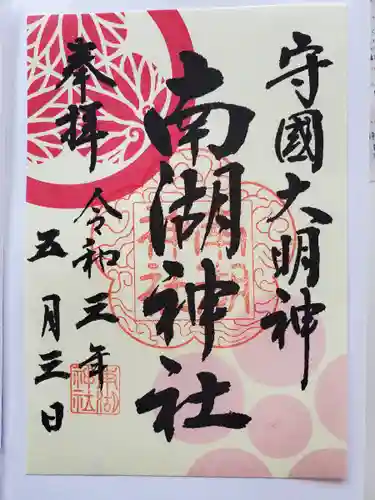 守國大明神
南湖神社
奉拝
令和三年
五月三日
南湖神社
南湖神社